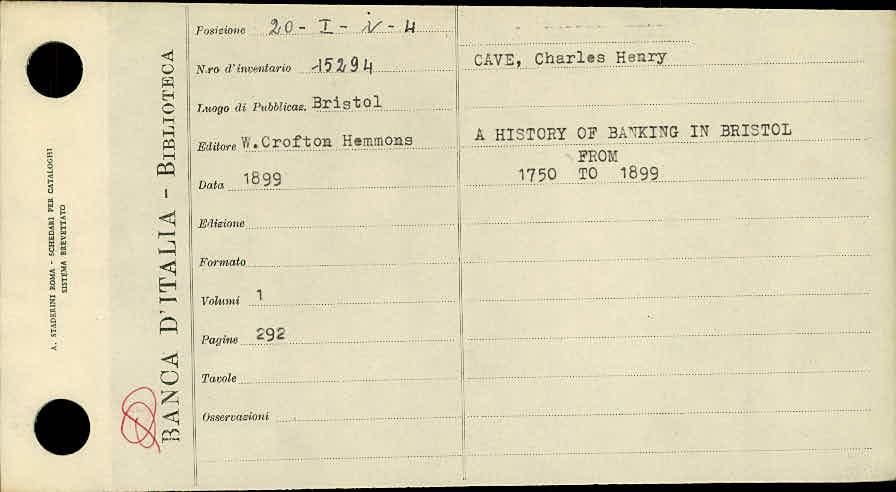 A. STADERINI ROMA - SCHEDARI PER CATALOGHI
SISTEMA BREVETTATO
BANCA D'ITALIA - BIBLIOTECA
Posizione 20 - I - IV - 4
N.ro d'inventario 15294
Luogo di Pubblicaz. Bristol
Editore W. Crofton Hemmons
Data 1899
Edizione
Formato
Volumi 1
Pagine 292
Tavole
Osservazioni
CAVE, Charles Henry
A HISTORY OF BANKING IN BRISTOL
FROM
1750 TO 1899